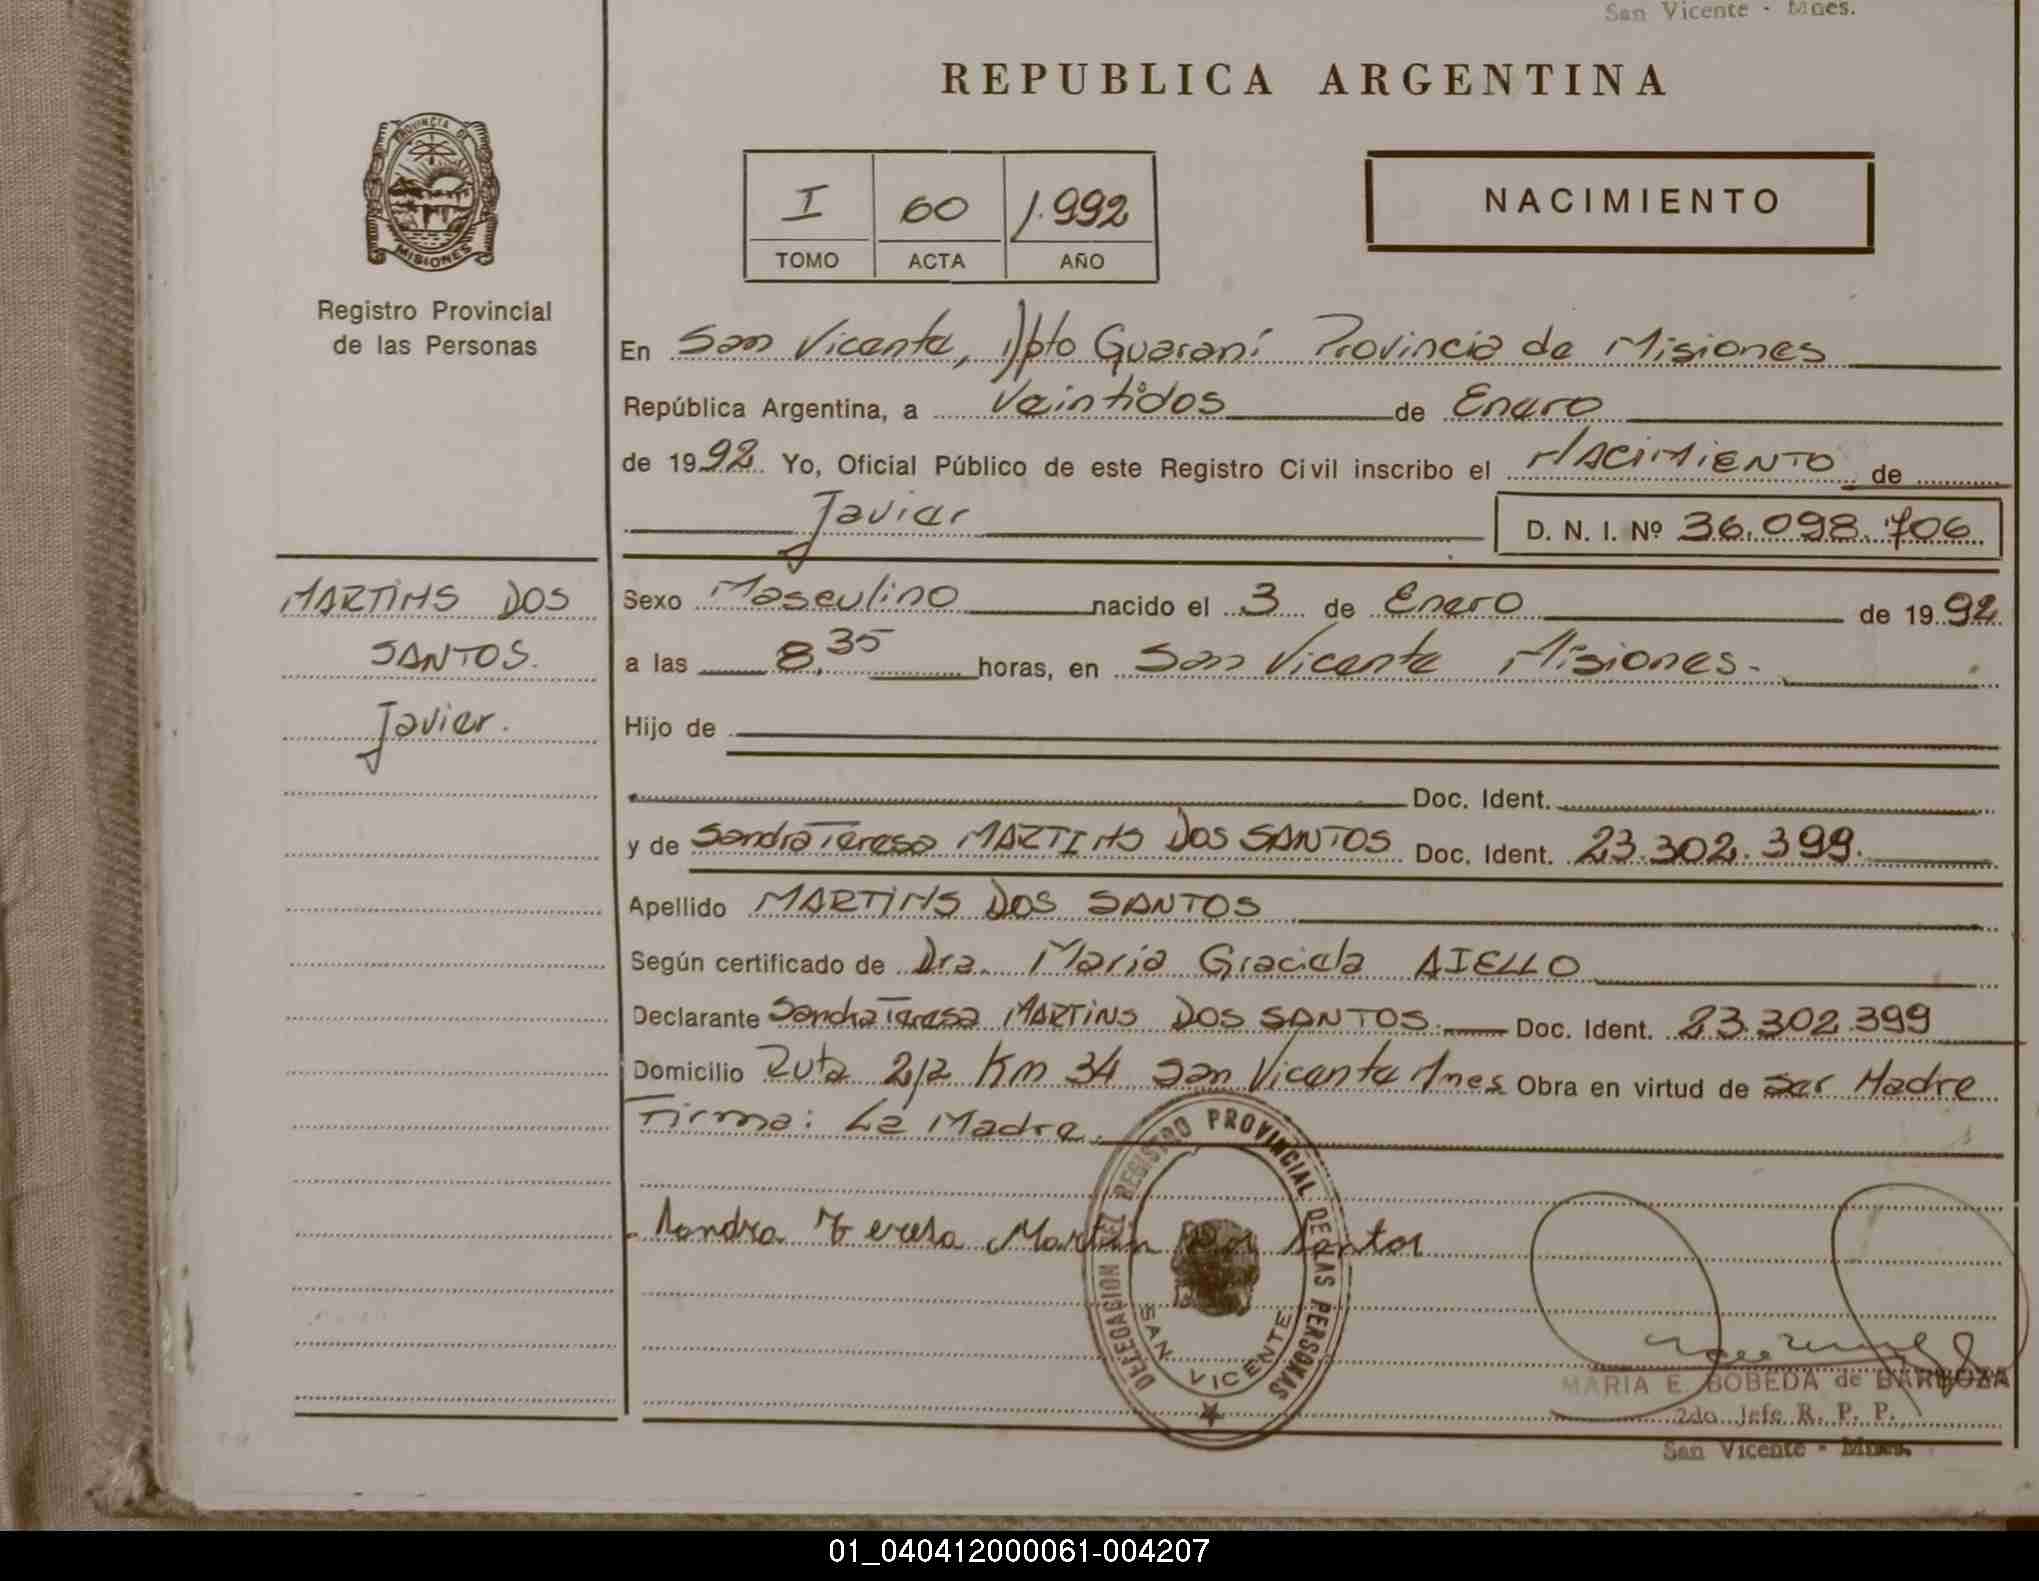 San Vicente - Mnes.
REPUBLICA ARGENTINA
PROVINCIA DE
MISIONES
I 60 1.992
TOMO ACTA AÑO
NACIMIENTO
Registro Provincial
de las Personas
En San Vicente, Dpto Guaraní Provincia de Misiones
República Argentina, a Veintidos de Enero
de 1992 Yo, Oficial Público de este Registro Civil inscribo el NACIMIENTO de
Javier D. N. I. Nº 36.098.706
MARTINS DOS
SANTOS.
Javier.
Sexo Masculino nacido el 3 de Enero de 1992
a las 8,35 horas, en San Vicente Misiones.
Hijo de
Doc. Ident.
y de Sandra Teresa MARTINS DOS SANTOS Doc. Ident. 23.302.399.
Apellido MARTINS DOS SANTOS
Según certificado de Dra. María Graciela AIELLO
Declarante Sandra Teresa MARTINS DOS SANTOS. Doc. Ident. 23.302.399
Domicilio Ruta 212 Km 34 San Vicente Mnes Obra en virtud de ser Madre
Firma: La Madre.
Sandra Teresa Martin Dos Santos
DELEGACION DEL REGISTRO PROVINCIAL DE LAS PERSONAS
SAN VICENTE
MARIA E. BOBEDA de BARBOZA
2do Jefe R. P. P.
San Vicente - Mnes.
01_040412000061-004207